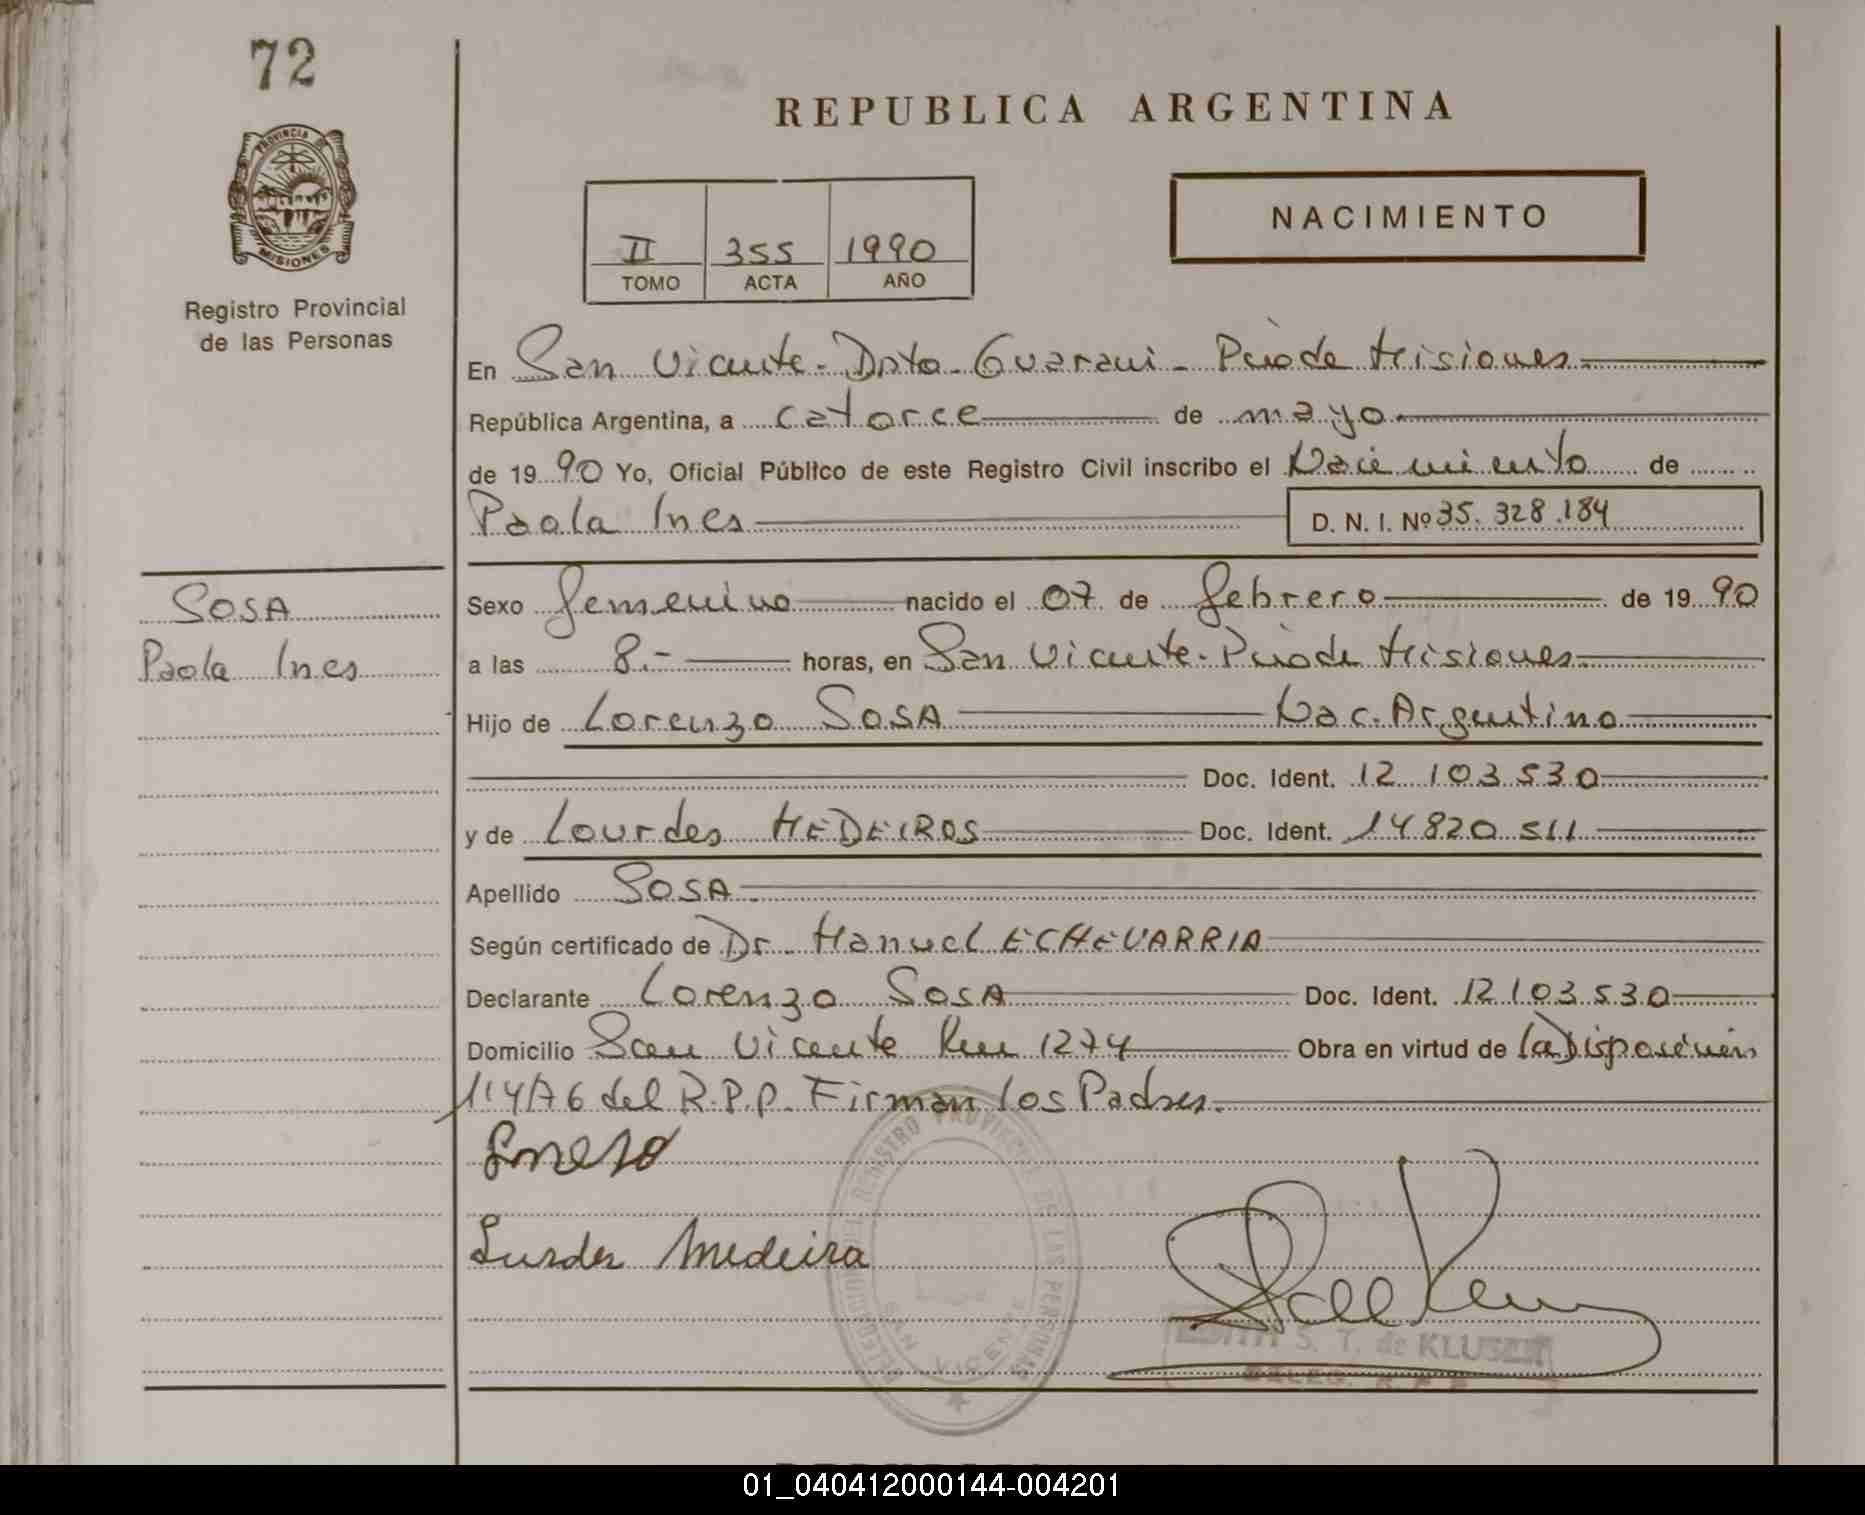 72
REPUBLICA ARGENTINA
PROVINCIA DE
MISIONES
Registro Provincial
de las Personas
II 355 1990
TOMO ACTA AÑO
NACIMIENTO
En San Vicente - Dpto. Guarani - Pcia de Misiones
República Argentina, a catorce de mayo
de 1990 Yo, Oficial Público de este Registro Civil inscribo el Nacimiento de
Paola Ines D. N. I. Nº 35.328.184
SOSA
Paola Ines
Sexo femenino nacido el 07 de febrero de 1990
a las 8.- horas, en San Vicente - Pcia de Misiones
Hijo de Lorenzo SOSA Nac. Argentino
Doc. Ident. 12 103 530
y de Lourdes MEDEIROS Doc. Ident. 14 820 511
Apellido SOSA
Según certificado de Dr. Manuel ECHEVARRIA
Declarante Lorenzo SOSA Doc. Ident. 12 103 530
Domicilio San Vicente Km 1274 Obra en virtud de la Disposición
114/76 del R.P.P. Firman los Padres.
Lurdes Medeira
DELEGACION DEL REGISTRO PROVINCIAL DE LAS PERSONAS
SAN VICENTE
EDITH S. T. de KLUSZER
DELEG. R. P. P.
01_040412000144-004201